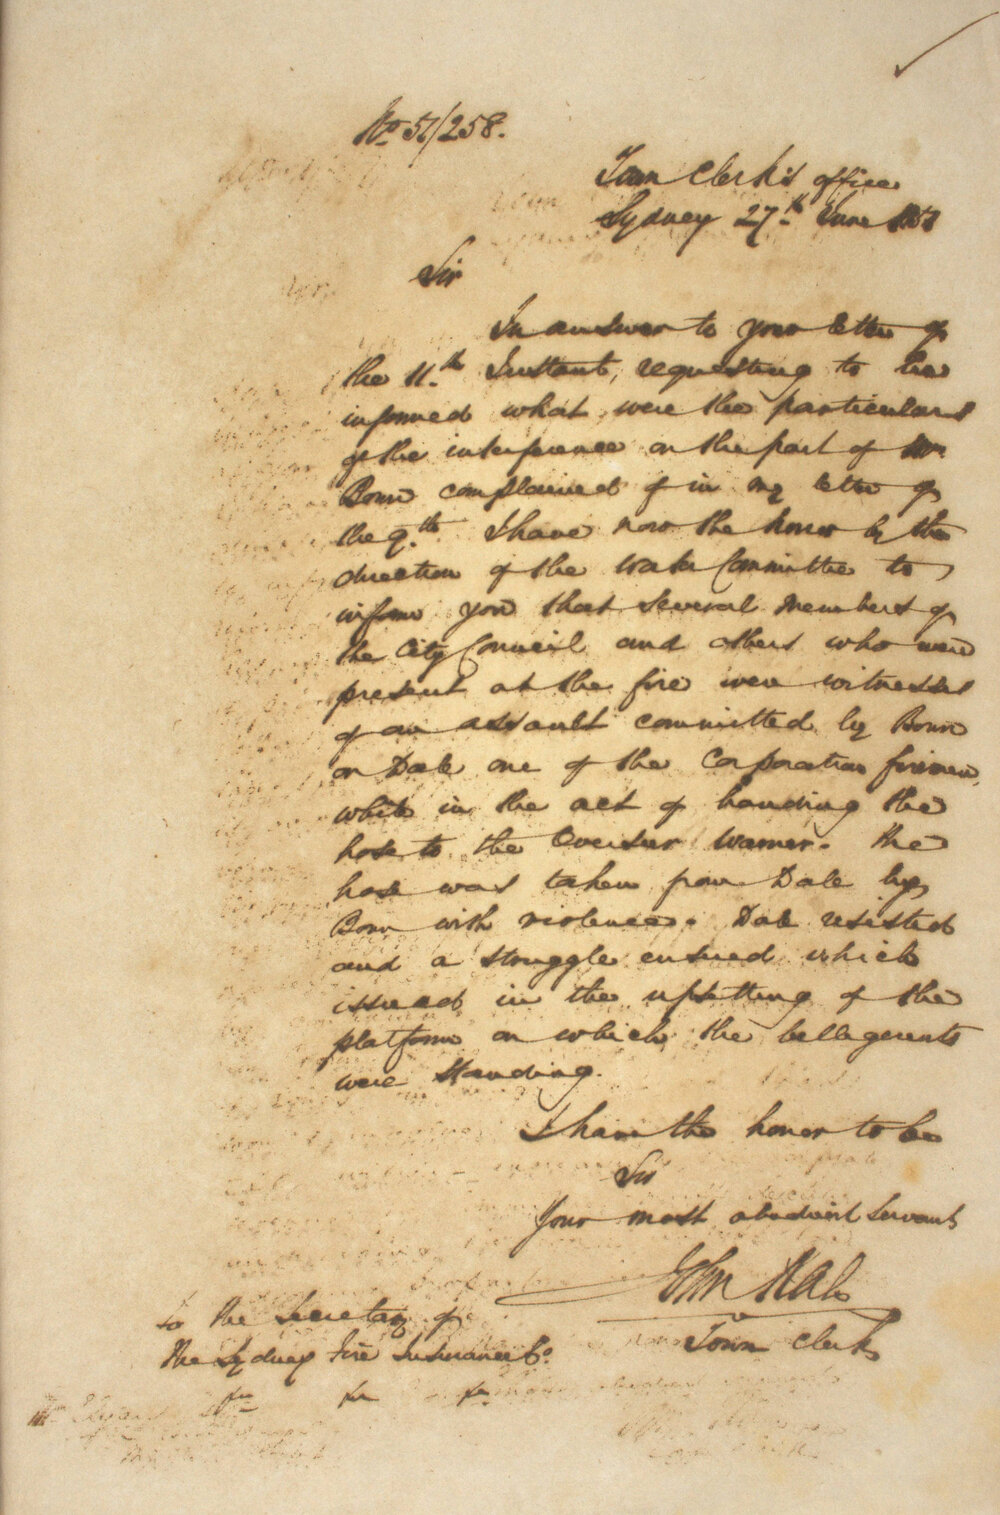 No 51/258.
Town Clerk's office
Sydney 27th June 1851
Sir
In answer to your letter of
the 11th Instant, requesting to be
informed what were the particulars
of the interference on the part of Mr
Bown complained of in my letter of
the 9th. I have now the honor by the
direction of the Water Committee to
inform you that several members of
the City Council and others who were
present at the fire were witnesses
of an assault committed by Bown
on Dale one of the Corporation firemen,
while in the act of handing the
hose to the Overseer Warner. The
hose was taken from Dale by
Bown with violence. Dale resisted
and a struggle ensued which
issued in the upsetting of the
platform on which the bellegerents
were standing.
I have the honor to be
Sir
Your most obedient Servant
John Rae
Town Clerk
To the Secretary of
the Sydney Fire Insurance Co.